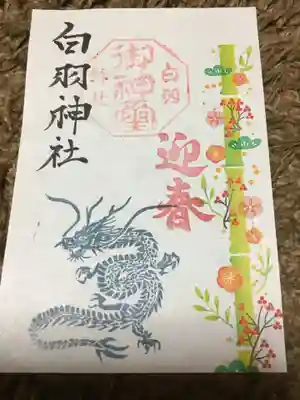 白羽神社
白羽
御神璽
神社
迎春